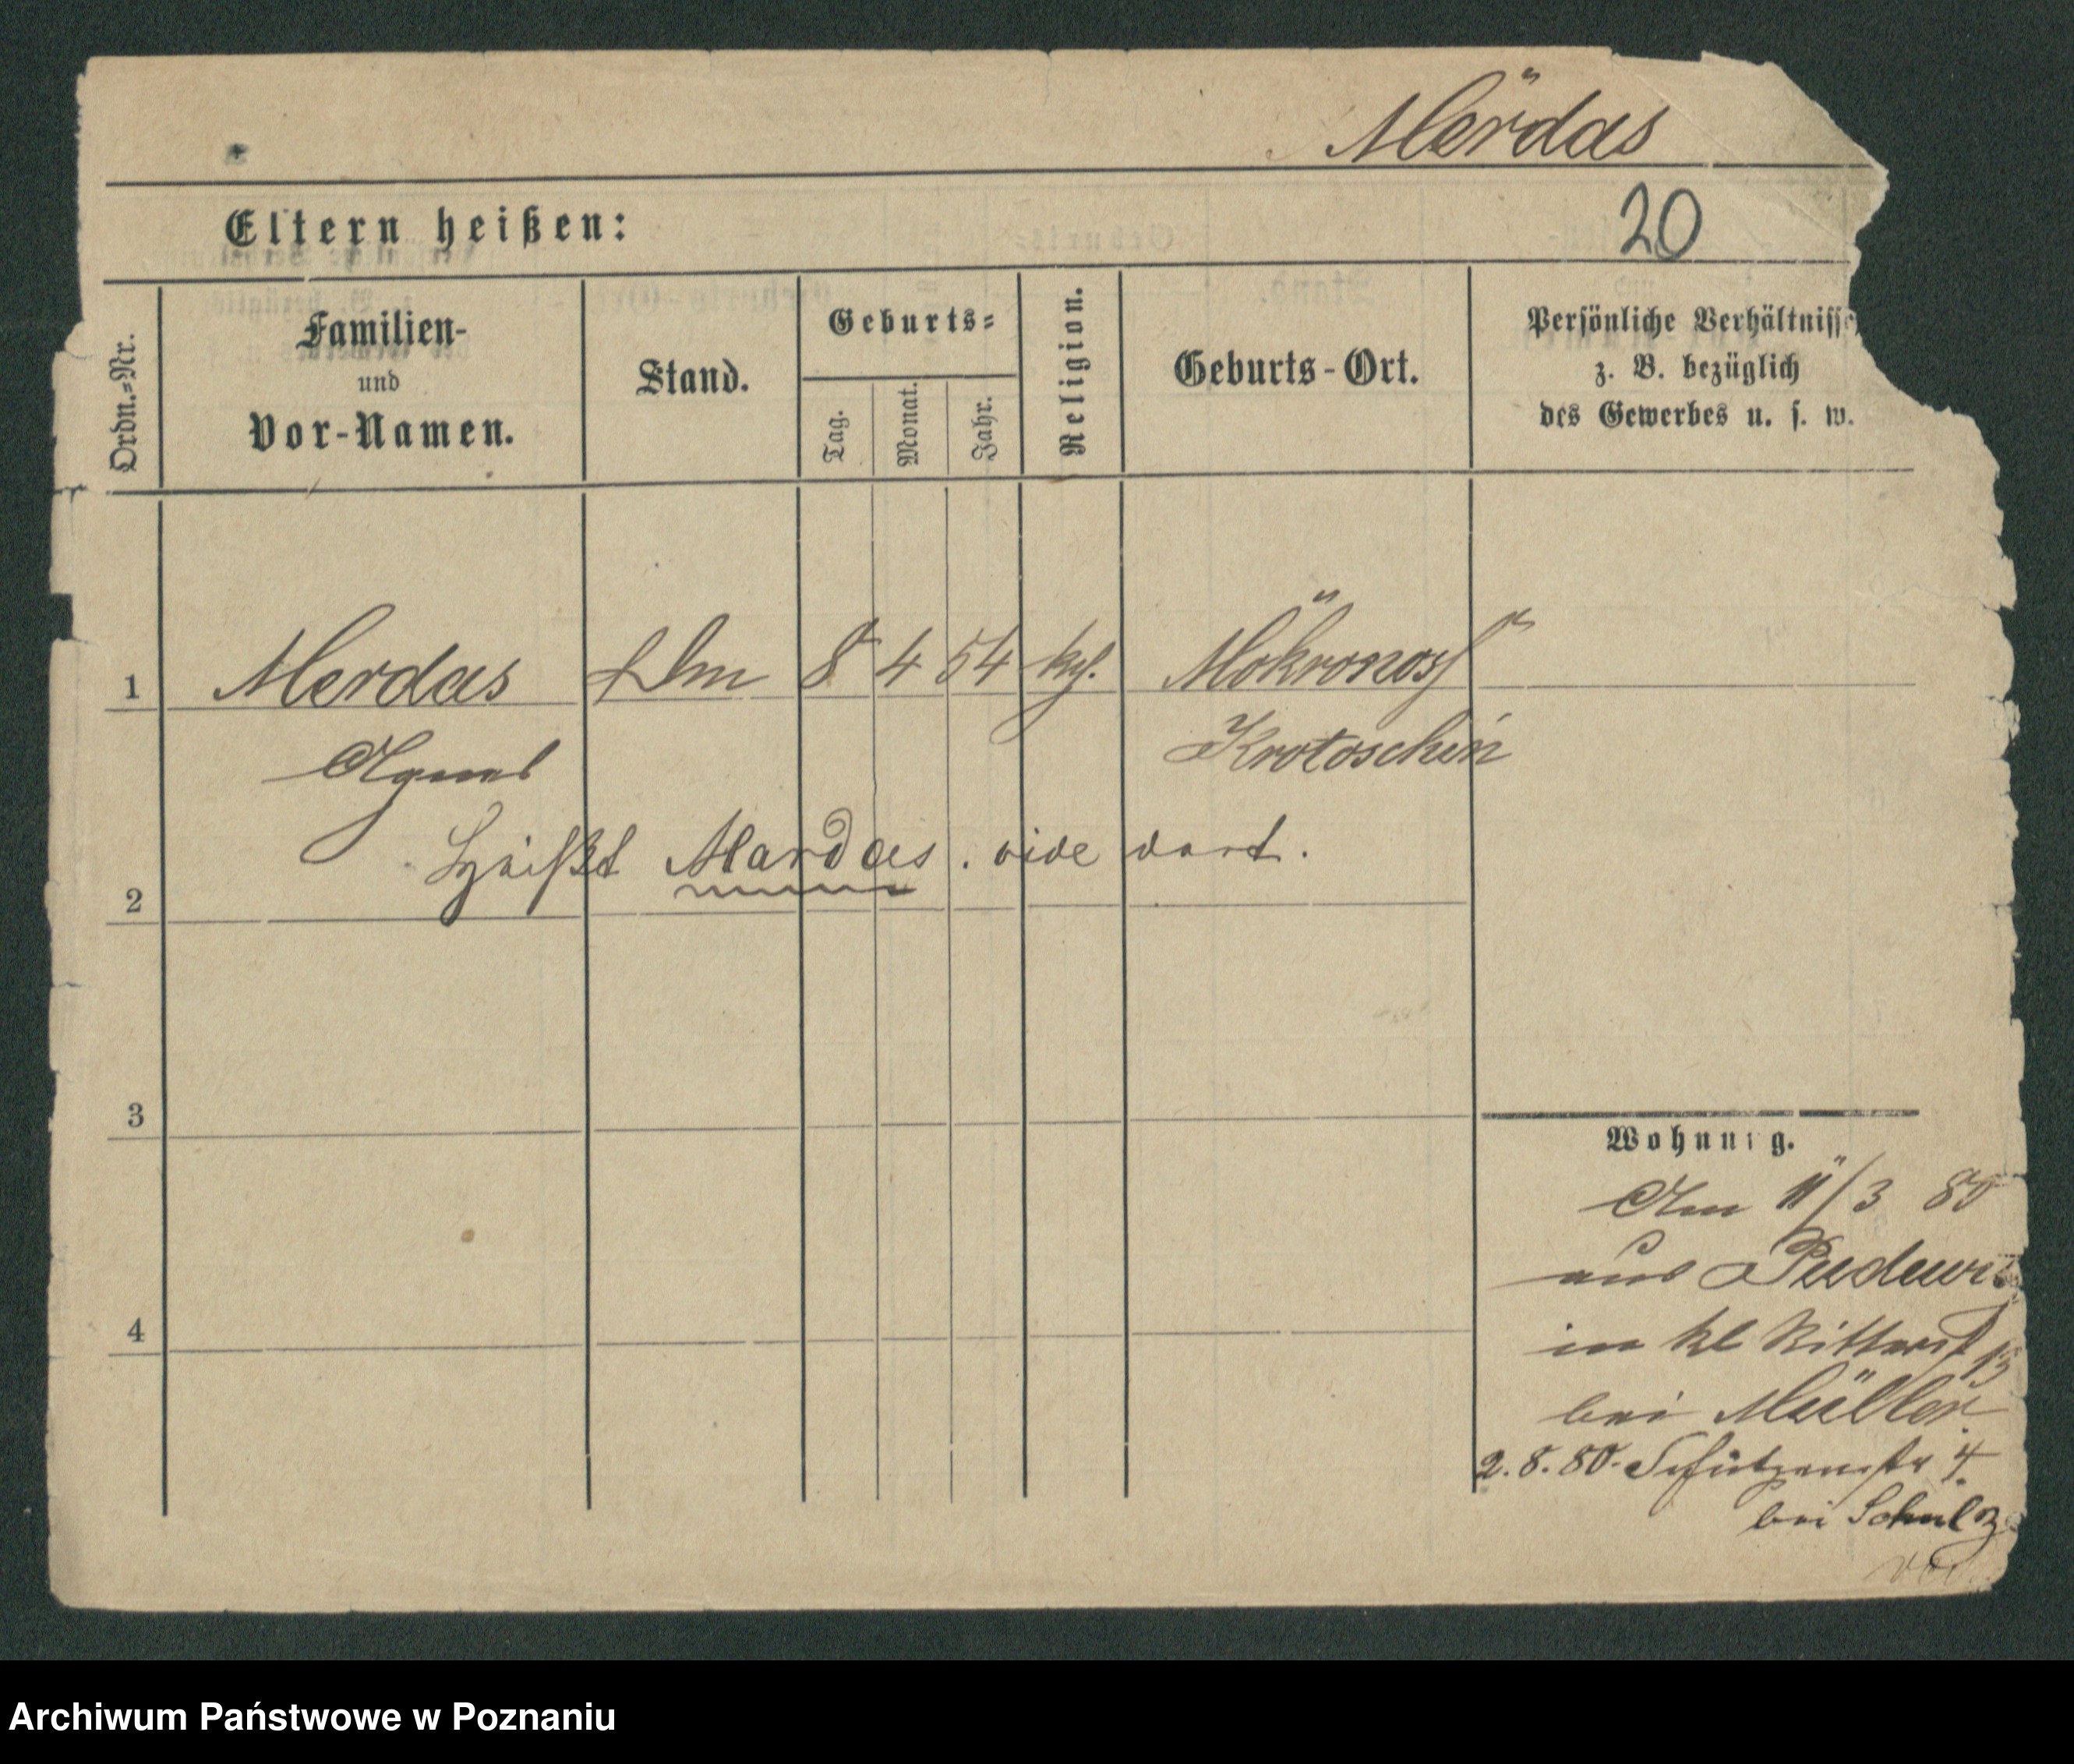 Merdas
20
Eltern heißen:
Ordn.=Nr.
Familien-
und
Vor-Namen.
Stand.
Geburts=
Tag.
Monat.
Jahr.
Religion.
Geburts-Ort.
Persönliche Verhältnisse
z. B. bezüglich
des Gewerbes u. s. w.
1 Merdas 8 4 54 Mokronos
Agnes Krotoschin
Heißt Mardas. vide dort.
2
3
4
Wohnung.
Am 11/3 80
aus Pudewi
in kl Ritterst 13
bei Müller
2.8.80. Schützenstr 4.
bei Schulz
Archiwum Państwowe w Poznaniu